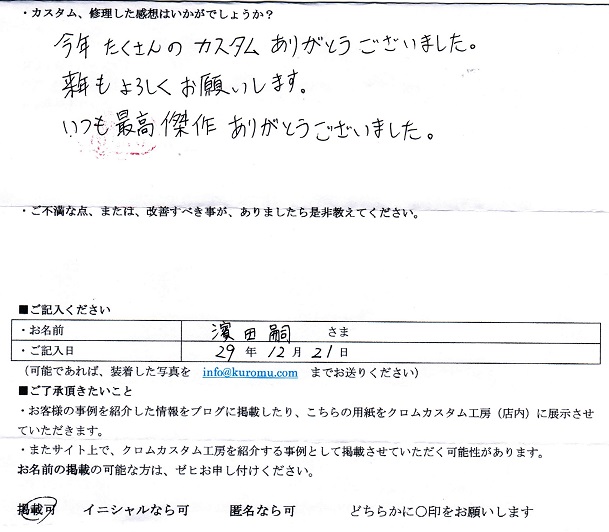 ・カスタム、修理した感想はいかがでしょうか？
今年 たくさんの カスタム ありがとう ございました。
来年も よろしく お願いします。
いつも 最高 傑作 ありがとうございました。
・ご不満な点、または、改善すべき事が、ありましたら是非教えてください。
■ご記入ください
・お名前 濱田嗣 さま
・ご記入日 29 年 12 月 21 日
（可能であれば、装着した写真を info@kuromu.com までお送りください）
■ご了承頂きたいこと
・お客様の事例を紹介した情報をブログに掲載したり、こちらの用紙をクロムカスタム工房（店内）に展示させ
ていただきます。
・またサイト上で、クロムカスタム工房を紹介する事例として掲載させていただく可能性があります。
お名前の掲載の可能な方は、ゼヒお申し付けください。
掲載可 イニシャルなら可 匿名なら可 どちらかに〇印をお願いします